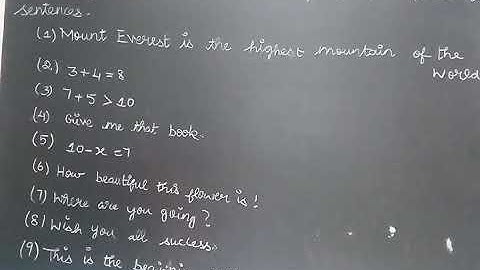 sentences.
(1) Mount Everest is the highest mountain of the
world
(2) 3+4=8
(3) 7+5>10
(4) Give me that book.
(5) 10-x=7
(6) How beautiful this flower is!
(7) Where are you going?
(8) Wish you all success.
(9) This is the